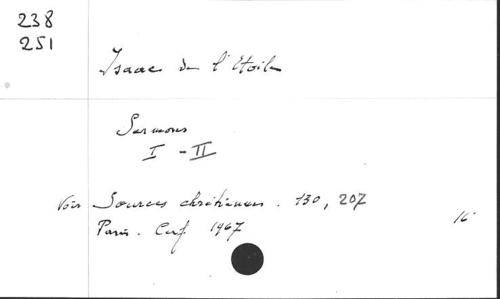 238
251
Isaac de l'Etoile
Sermons
I - II
Voir Sources chrétiennes. 130, 207
Paris. Cerf 1967
16